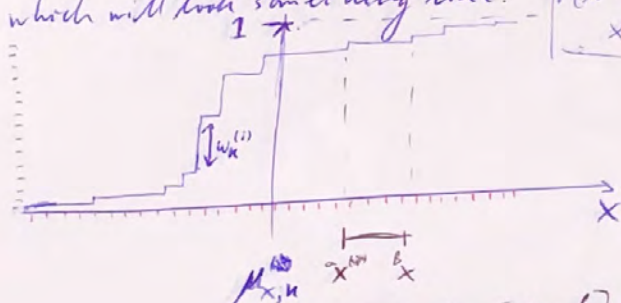 which will look something like
1
w_n^{(i)}
X
μ_{x,n}
a_X
β_X